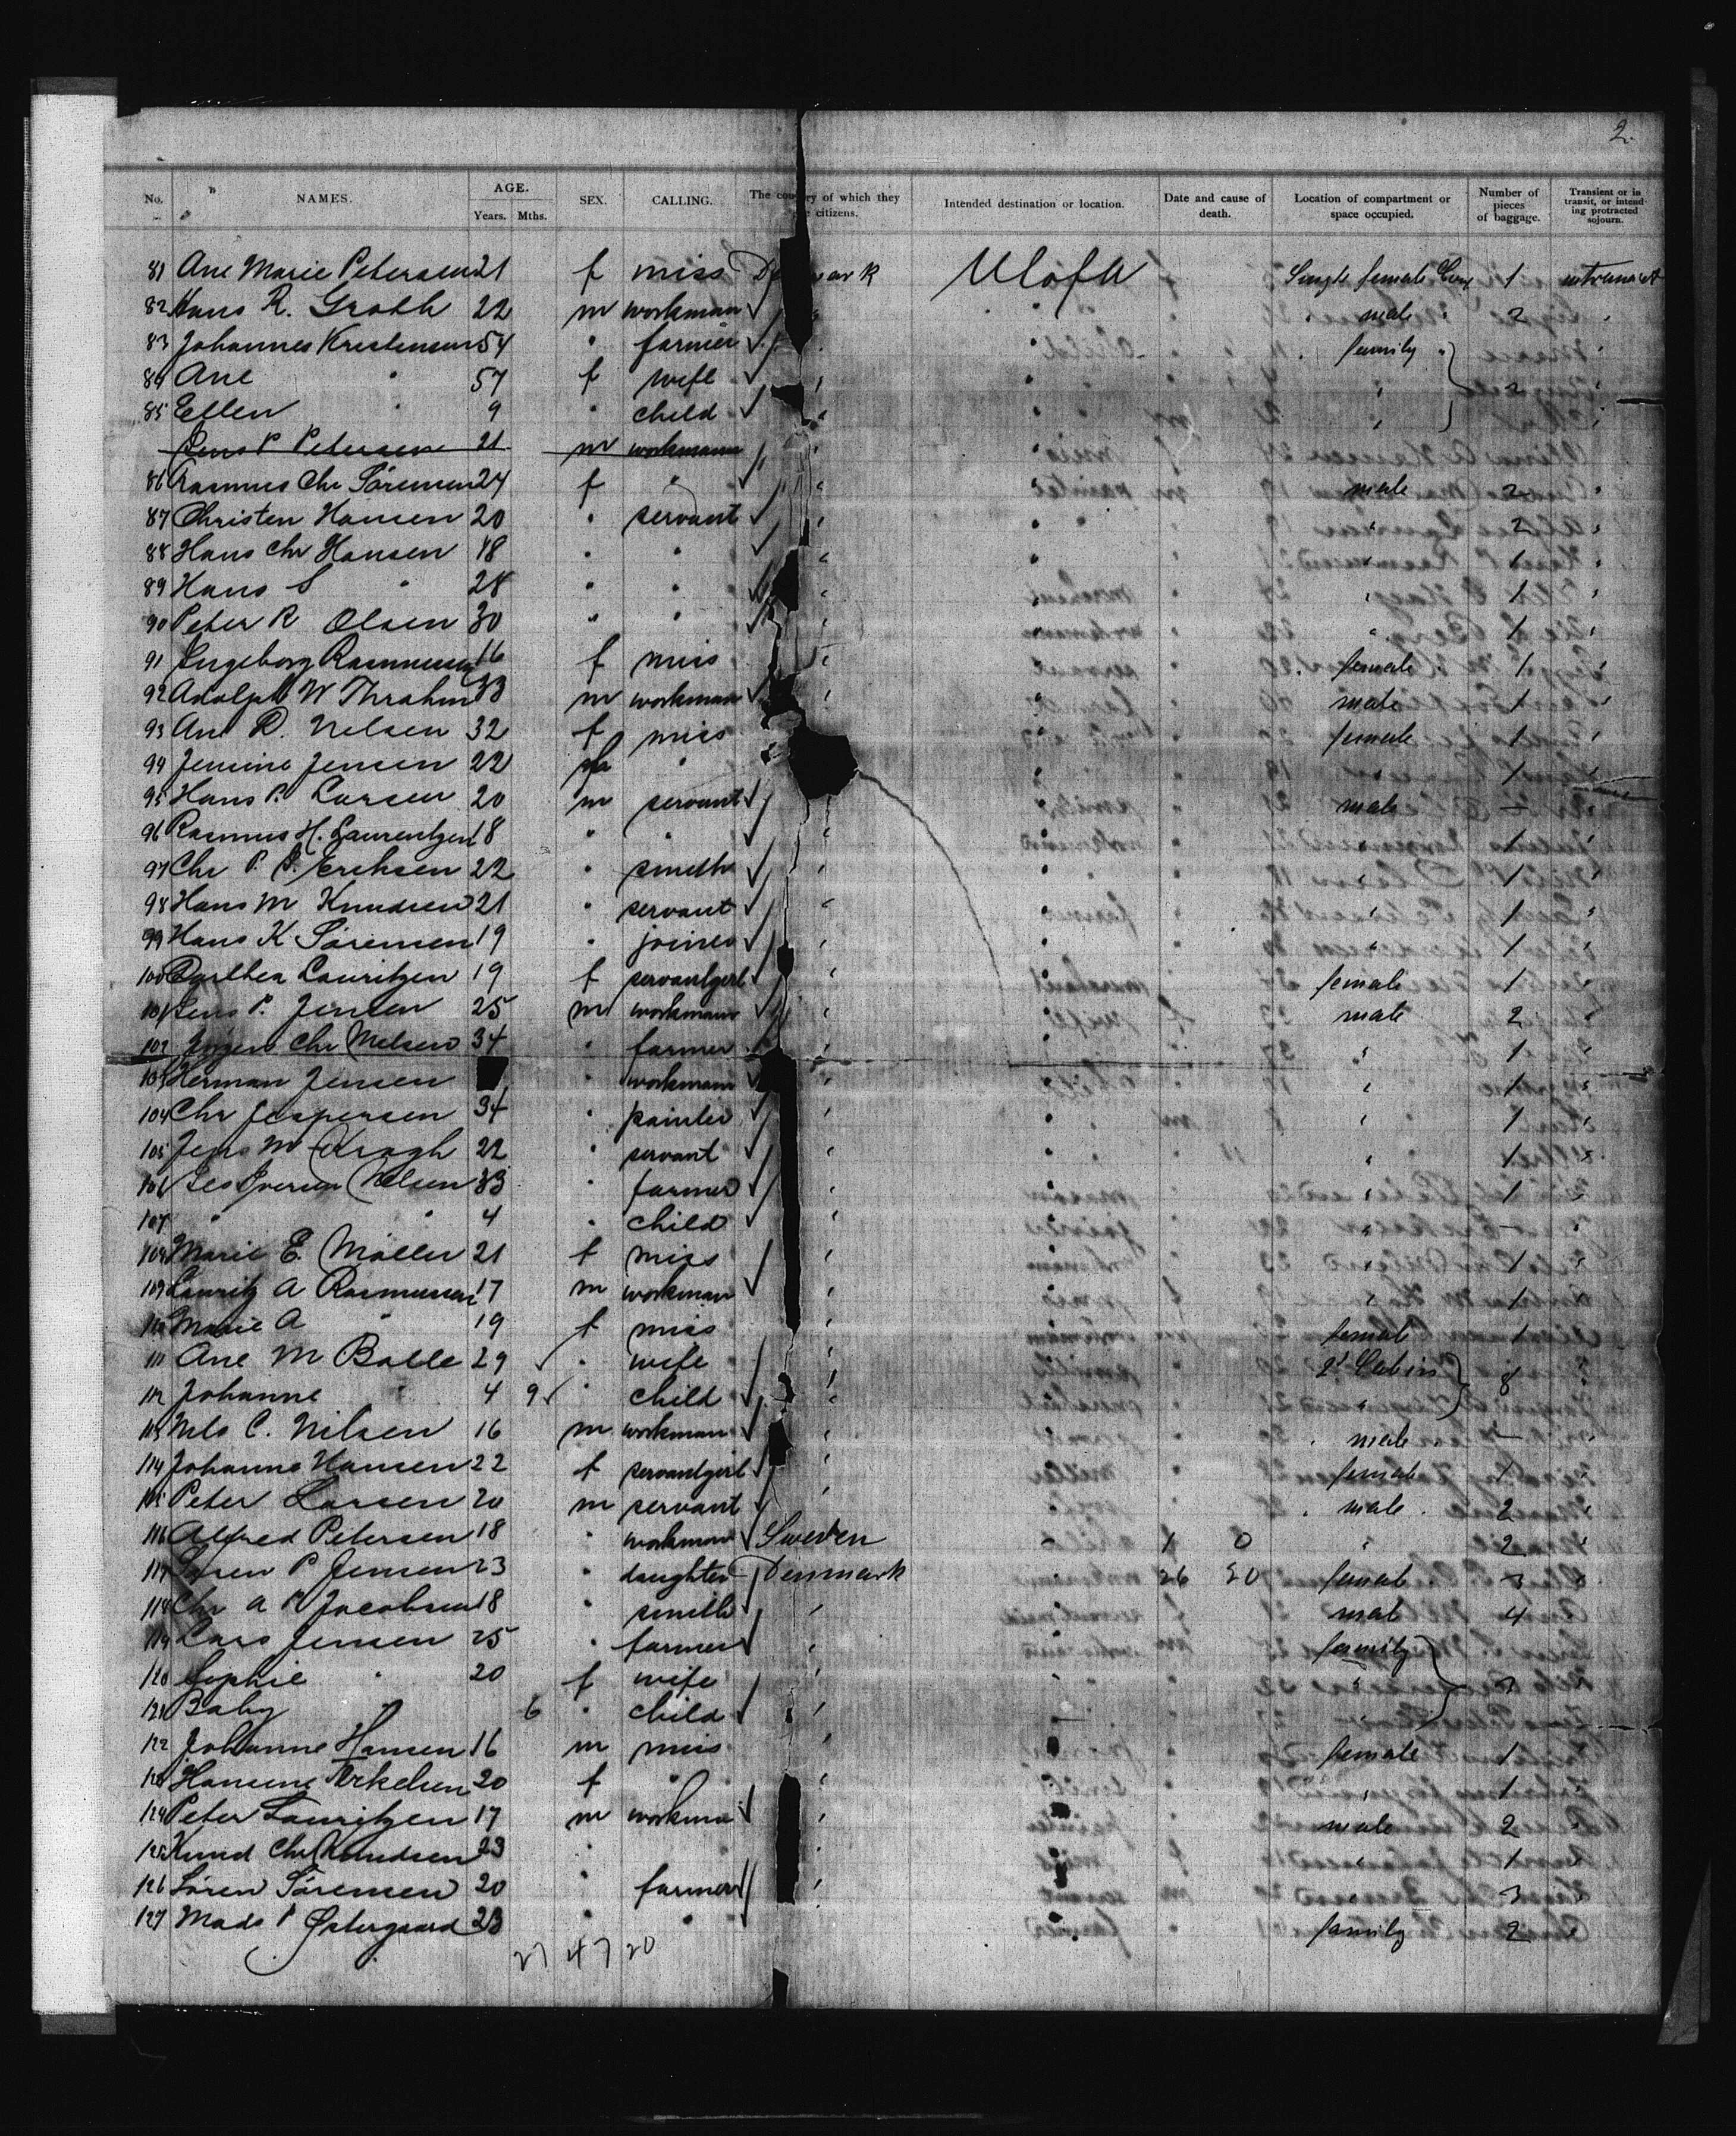 2.
No. NAMES. AGE. Years. Mths. SEX. CALLING. The country of which they citizens. Intended destination or location. Date and cause of death. Location of compartment or space occupied. Number of pieces of baggage. Transient or in transit, or intending protracted sojourn.
81 Ane Marie Petersen 21 f miss D ark USofA Single female 1
82 Hans R. Groth 22 m workman " male " 2
83 Johannes Kristensen 54 " farmer family "
84 Ane " 57 f wife " 2
85 Ellen " 9 " child "
Jens P Petersen 21 m workmann
86 Rasmus Chr Sörensen 24 f " male 2
87 Christen Hansen 20 " servant " 2
88 Hans Chr Hansen 18 " " " 1
89 Hans S " 28 " " " 1
90 Peter R Olsen 30 " " " 1
91 Ingeborg Rasmussen 16 f miss female 1
92 Adolph W Thrahm 33 m workman male 1
93 Ane D. Nelsen 32 f miss female 1
94 Jensine Jensen 22 " " 1
95 Hans P. Larsen 20 m servant male —
96 Rasmus H. Laurentzen 18 " " " 1
97 Chr P. S. Eriksen 22 " smith " 1
98 Hans M Knudsen 21 " servant " 1
99 Hans K Sörensen 19 " joiner " 1
100 Dorthea Lauritzen 19 f servantgirl female 1
101 Jens P. Jensen 25 m workman male 2
102 Jörgen Chr Nielsen 34 " farmer " 1
103 Herman Jensen " workmann " 1
104 Chr Jespersen 34 " painter " 1
105 Jens M Kragh 22 " servant " 1
106 Iversen Olsen 33 " farmer " 1
107 " " 4 " child " —
108 Marie E. Möller 21 f miss " 1
109 Lauritz A Rasmussen 17 m workman " 1
110 Marie A " 19 f miss female 1
111 Ane M Balle 29 " wife 2d Cabin
112 Johanne " 4 9 " child " 8
113 Nels C. Nilsen 16 m workman " male —
114 Johanne Hansen 22 f servantgirl female 1
115 Peter Larsen 20 m servant " male 2
116 Alfred Petersen 18 " workman Sweden " 2
117 Sören P Jensen 23 " daughter Denmark female 3
118 Chr A P Jacobsen 18 " smith male 4
119 Lars Jensen 25 " farmer family
120 Sophie " 20 f wife "
121 Baby " 6 " child "
122 Johanne Hansen 16 m miss female 1
123 Hansine Terkelsen 20 f " " 1
124 Peter Lauritzen 17 m workma male 2
125 Knud Chr Knudsen 23 " " 1
126 Sören Sörensen 20 " farmer " 3
127 Mads P Østergaard 23 " " family 2
27 47 20